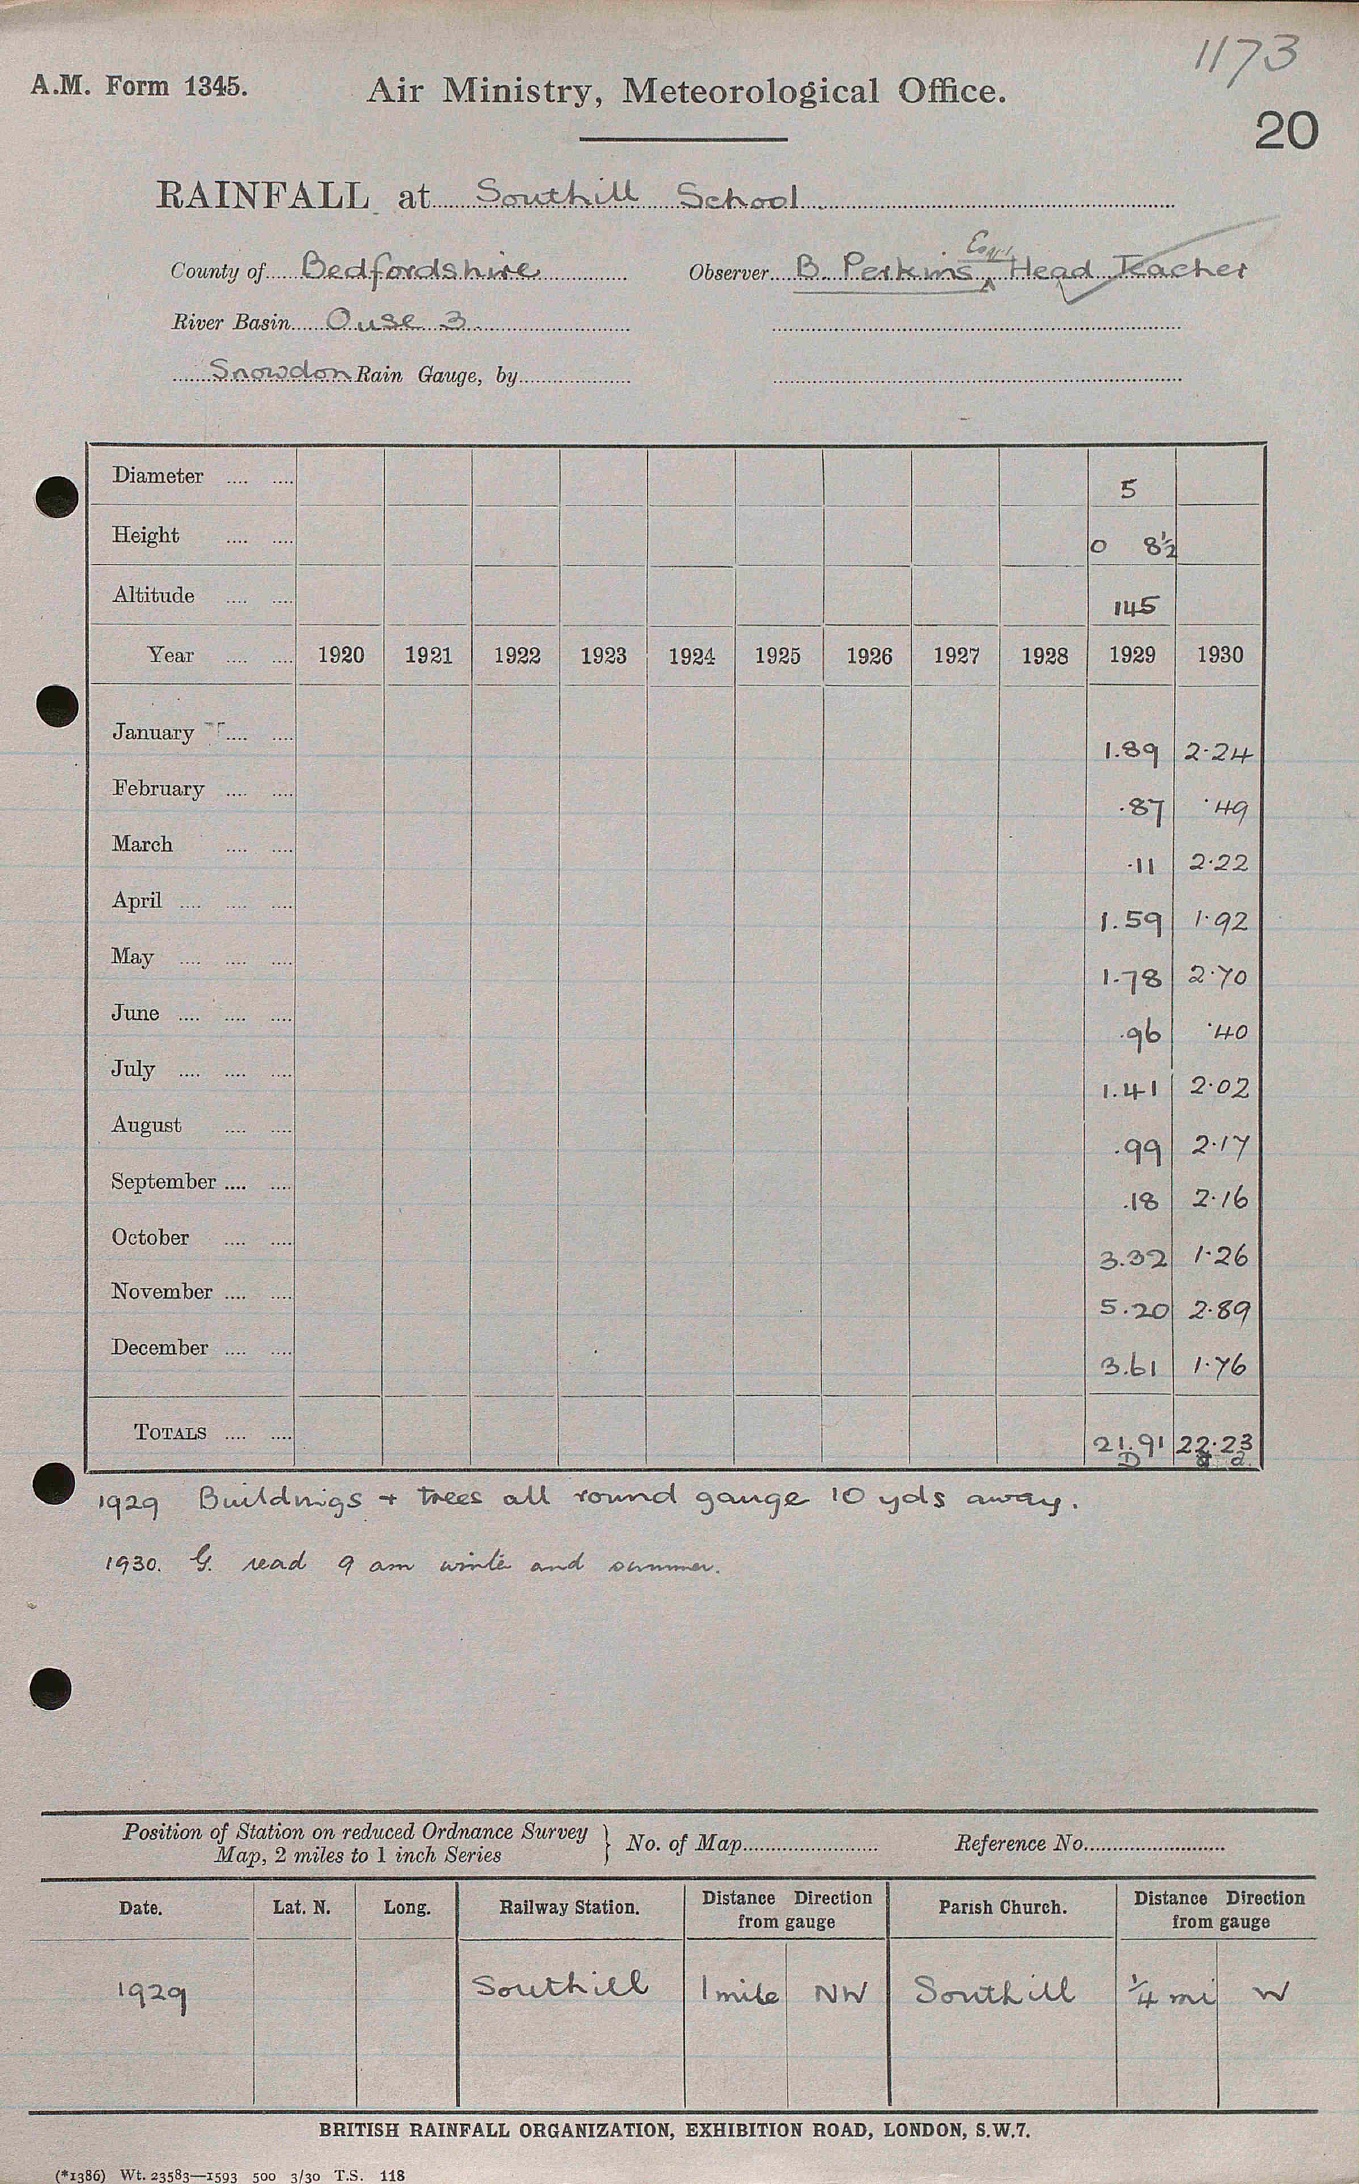 1173
A.M. Form 1345.
Air Ministry, Meteorological Office.
20
RAINFALL at Southill School
County of Bedfordshire Observer B. Perkins Esq. Head Teacher
River Basin Ouse 3.
Snowdon Rain Gauge, by
Diameter 5
Height 0 8½
Altitude 145
Year 1920 1921 1922 1923 1924 1925 1926 1927 1928 1929 1930
January 1.89 2.24
February .87 .49
March .11 2.22
April 1.59 1.92
May 1.78 2.70
June .96 .40
July 1.41 2.02
August .99 2.17
September .18 2.16
October 3.32 1.26
November 5.20 2.89
December 3.61 1.76
TOTALS 21.91 22.23
D
1929 Buildings + trees all round gauge 10 yds away.
1930. G. read 9 am winter and summer.
Position of Station on reduced Ordnance Survey
Map, 2 miles to 1 inch Series } No. of Map Reference No.
Date. Lat. N. Long. Railway Station. Distance Direction from gauge Parish Church. Distance Direction from gauge
1929 Southill 1 mile NW Southill ¼ mi W
BRITISH RAINFALL ORGANIZATION, EXHIBITION ROAD, LONDON, S.W.7.
(*1386) Wt. 23583—1593 500 3/30 T.S. 118